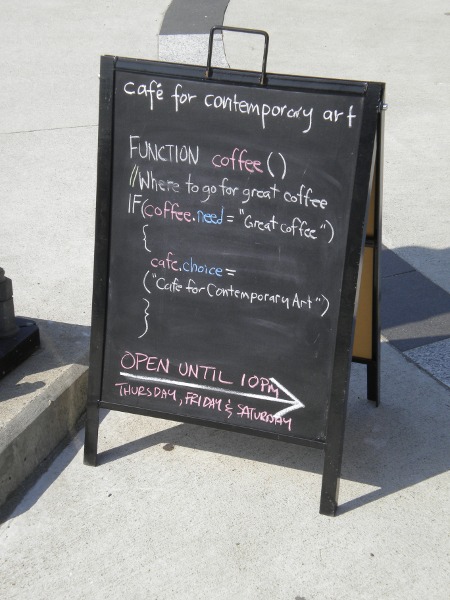 café for contemporary art
FUNCTION coffee()
//Where to go for great coffee
IF(coffee.need="Great coffee")
{
cafe.choice=
("Cafe for Contemporary Art")
}
OPEN UNTIL 10PM
THURSDAY, FRIDAY & SATURDAY